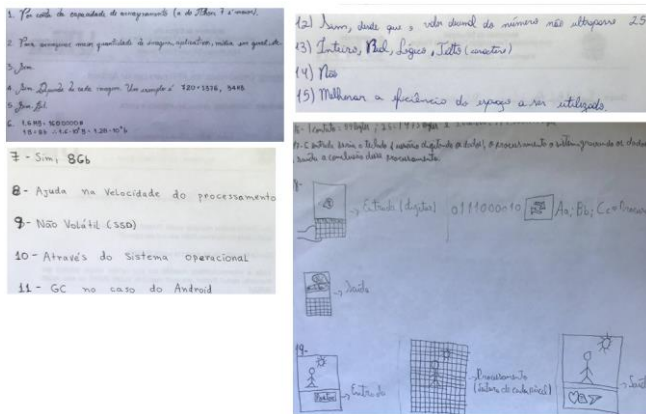 1. Por conta da capacidade de armazenamento (a do Iphone 7 é maior).
2. Para armazenar maior quantidade de imagens, aplicativos, mídia em geral, etc.
3. Sim.
4. Sim. Depende de cada imagem. Um exemplo é 720×1376, 54KB
5. Sim.
6. 1.6 MB = 1600000 B
7 - Sim, 8Gb
8 - Ajuda na velocidade do processamento
9 - Não Volátil (SSD)
10 - Através do Sistema operacional
11 - GC no caso do Android
12) Sim, desde que o valor decimal do número não ultrapasse 25
13) Inteiro, Real, Lógico, Texto (caractere)
14) Não
15) Melhorar a eficiência do espaço a ser utilizado.
entrada seria o teclado (usuário digitando os dados), o processamento o sistema gravando os dados
saída a conclusão desse processamento.
→ Entrada (digitar) 0111000010 Aa; Bb; Cc =
→ Saída
19-
→ Entrada
→ Processamento
(leitura de cada pixel)
→ Saída